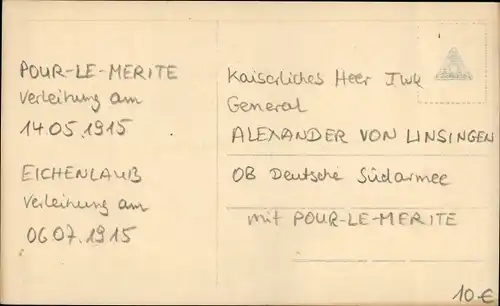 POUR-LE-MERITE
Verleihung am
14.05.1915
EICHENLAUB
Verleihung am
06.07.1915
Kaiserliches Heer IWK
General
ALEXANDER VON LINSINGEN
OB Deutsche Südarmee
mit POUR-LE-MERITE
10.-€